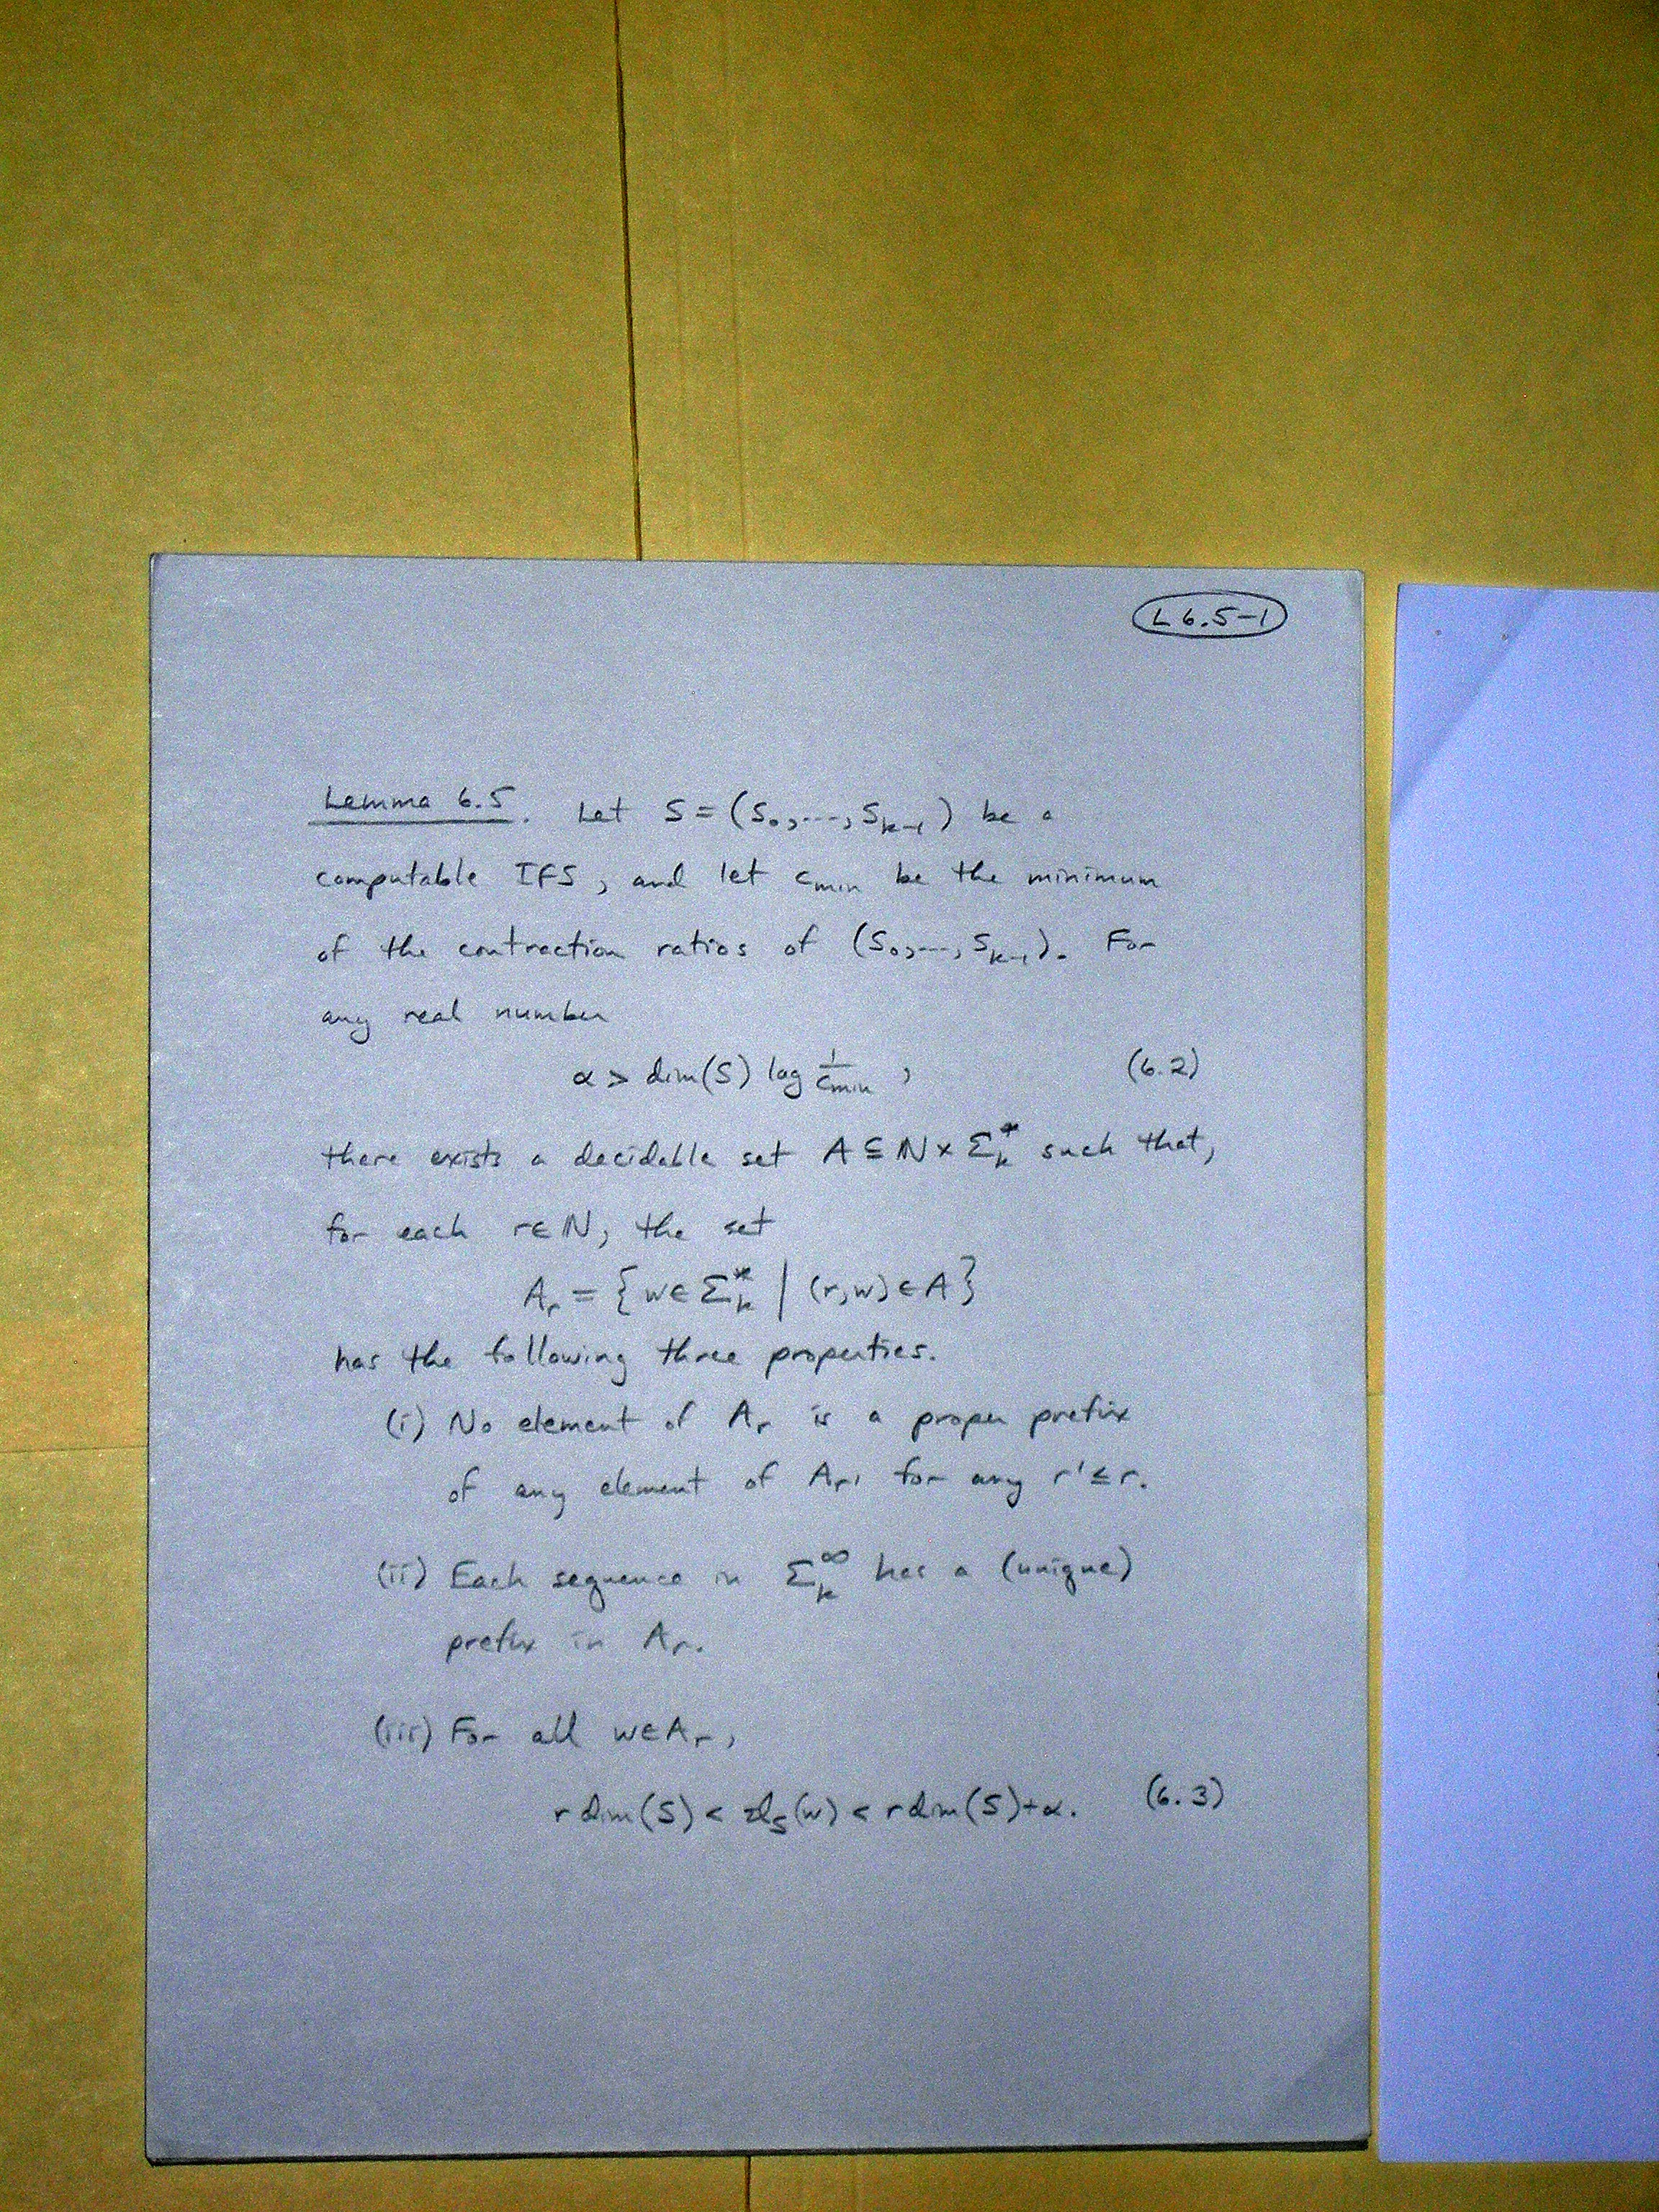 L 6.5-1
Lemma 6.5. Let S = (S₀,---, Sₖ₋₁) be a
computable IFS, and let c_min be the minimum
of the contraction ratios of (S₀,---, Sₖ₋₁). For
any real number
α > dim(S) log 1/c_min , (6.2)
there exists a decidable set A ⊆ ℕ × Σₖ* such that,
for each r ∈ ℕ, the set
Aᵣ = { w ∈ Σₖ* | (r,w) ∈ A }
has the following three properties.
(i) No element of Aᵣ is a proper prefix
of any element of Aᵣ′ for any r′ ≤ r.
(ii) Each sequence in Σₖ^∞ has a (unique)
prefix in Aᵣ.
(iii) For all w ∈ Aᵣ,
r dim(S) < 𝓘ₛ(w) < r dim(S) + α. (6.3)